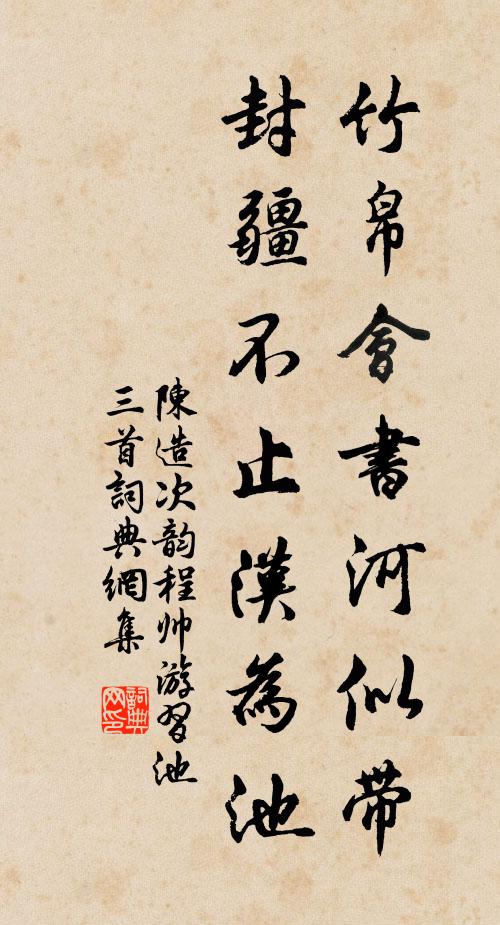 竹帛會書河似带
封疆不止漢為池
陳造次韵程帅游習池
三首詞典網集
詞典
网印